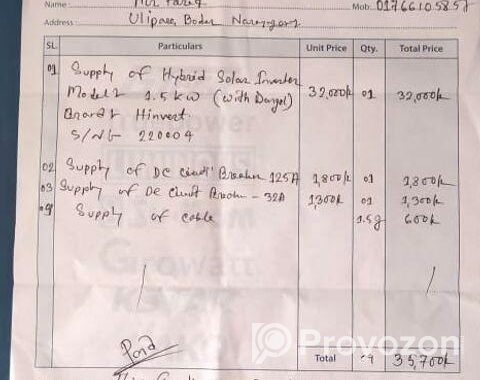 Name : Mr Tareq Mob: 01766105857
Address : Ulipara, Boder Narayangonj
SL. Particulars Unit Price Qty. Total Price
01 Supply of Hybrid Solar Inverter
Model: 1.5 KW (with Dongel) 32,000/= 01 32,000/=
Brand: Hinvert
S/N: 220004
02 Supply of DC Circuit Breaker 125A 1,800/= 01 1,800/=
03 Supply of DC Circuit Breaker - 32A 1,300/= 01 1,300/=
04 Supply of cable 1.5g 600/=
Growatt
Paid
Total 35,700/=
Provozon